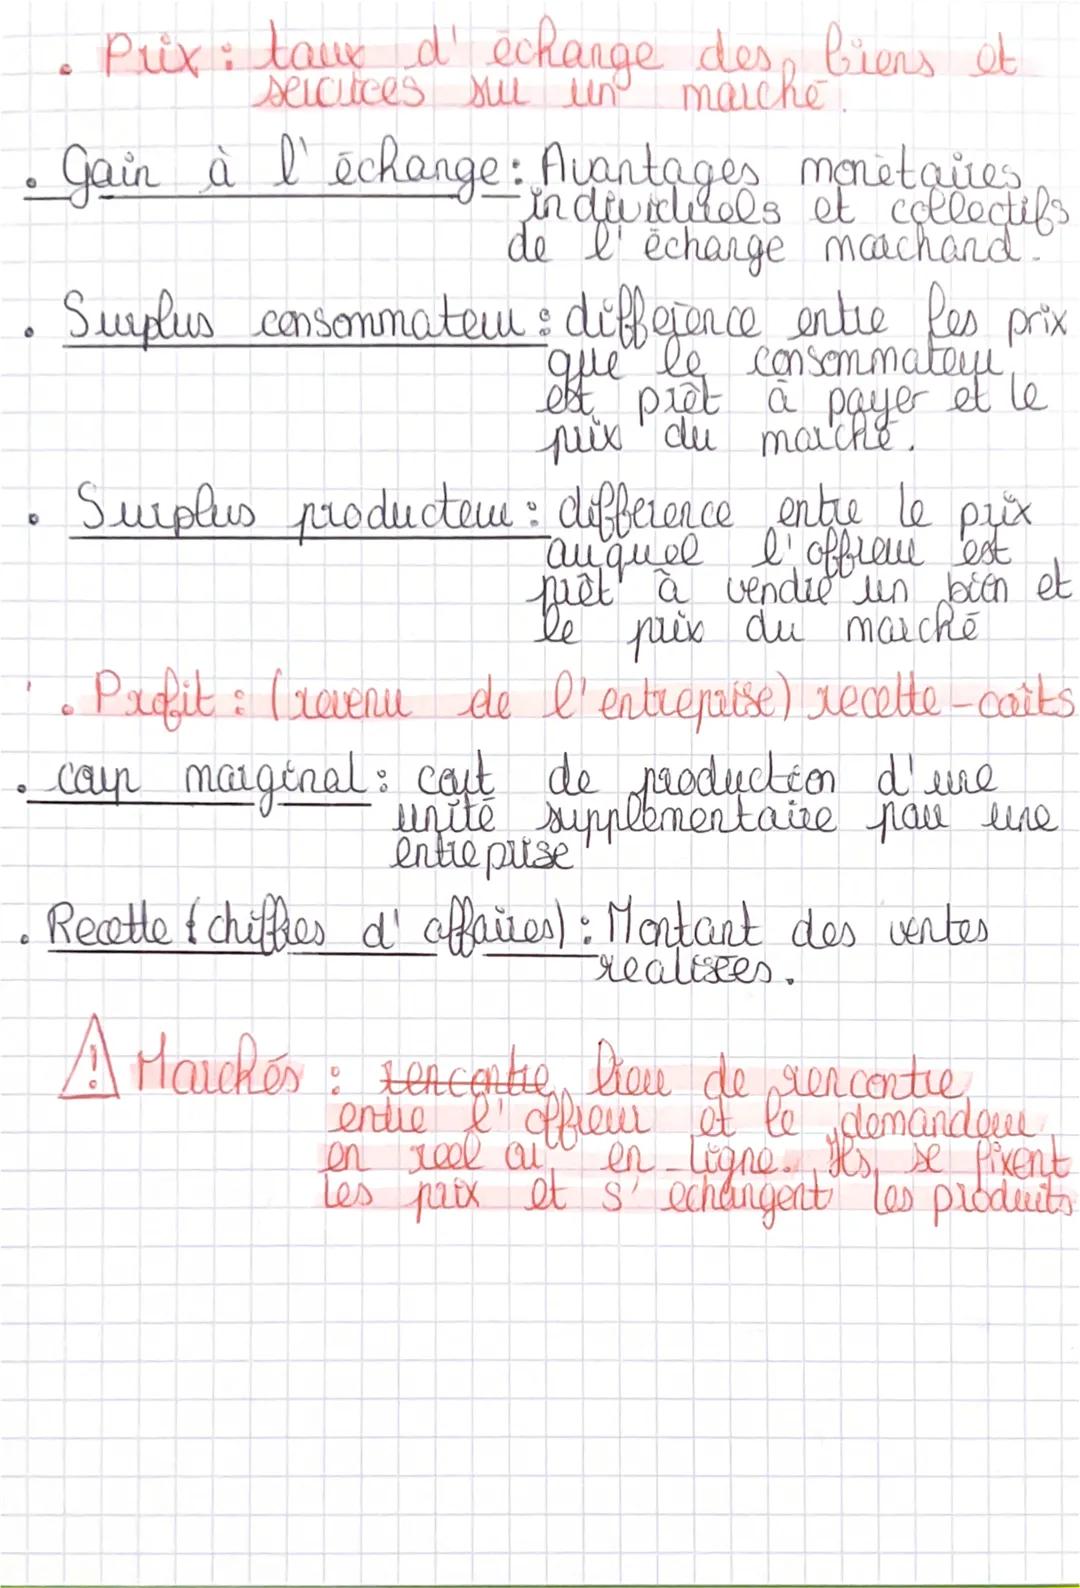 . Prix : taux d'échange des biens et
services sur un marché.
. Gain à l'échange : Avantages monétaires
individuels et collectifs
de l'échange marchand.
. Surplus consommateur : différence entre les prix
que le consommateur
est prêt à payer et le
prix du marché.
. Surplus producteur : différence entre le prix
auquel l'offreur est
prêt à vendre un bien et
le prix du marché
. Profit : (revenu de l'entreprise) recette - coûts
. coup marginal : cout de production d'une
unité supplémentaire par une
entreprise
. Recette (chiffres d'affaires) : Montant des ventes
realisées.
⚠ Marchés : rencontre lieu de rencontre
entre l'offreur et le demandeur
en reel ou en ligne. Ils se fixent
les prix et s'echangent les produits